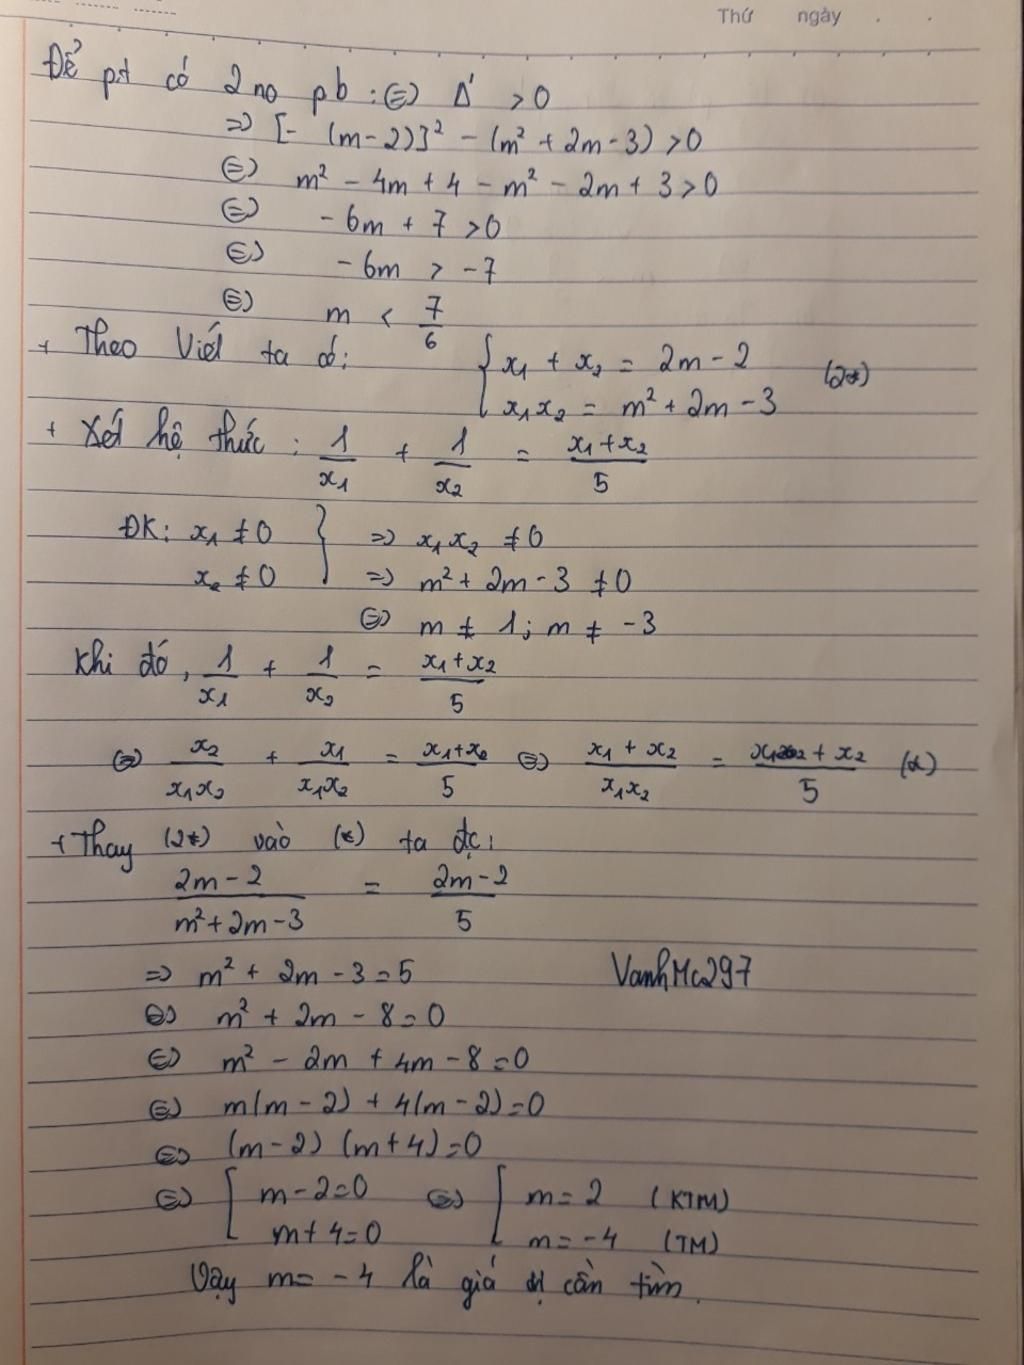 Thứ ngày . .
Để pt có 2 no pb : ⇔ Δ' > 0
⇒ [- (m-2)]² - (m² + 2m - 3) > 0
⇔ m² - 4m + 4 - m² - 2m + 3 > 0
⇔ - 6m + 7 > 0
⇔ - 6m > -7
⇔ m < 7/6
+ Theo Viét ta có: { x₁ + x₂ = 2m - 2
x₁x₂ = m² + 2m - 3 (2*)
+ Xét hệ thức : 1/x₁ + 1/x₂ = (x₁+x₂)/5
ĐK: x₁ ≠ 0 } ⇒ x₁x₂ ≠ 0
x₂ ≠ 0 ⇒ m² + 2m - 3 ≠ 0
⇔ m ≠ 1; m ≠ -3
Khi đó, 1/x₁ + 1/x₂ = (x₁+x₂)/5
⇔ x₂/(x₁x₂) + x₁/(x₁x₂) = (x₁+x₂)/5 ⇔ (x₁ + x₂)/(x₁x₂) = (x₁ + x₂)/5 (*)
+ Thay (2*) vào (*) ta đc:
(2m - 2)/(m² + 2m - 3) = (2m - 2)/5
⇒ m² + 2m - 3 = 5
VanhMc297
⇔ m² + 2m - 8 = 0
⇔ m² - 2m + 4m - 8 = 0
⇔ m(m - 2) + 4(m - 2) = 0
⇔ (m - 2) (m + 4) = 0
⇔ [ m - 2 = 0 ⇔ [ m = 2 (KTM)
m + 4 = 0 m = -4 (TM)
Vậy m = -4 là giá trị cần tìm.